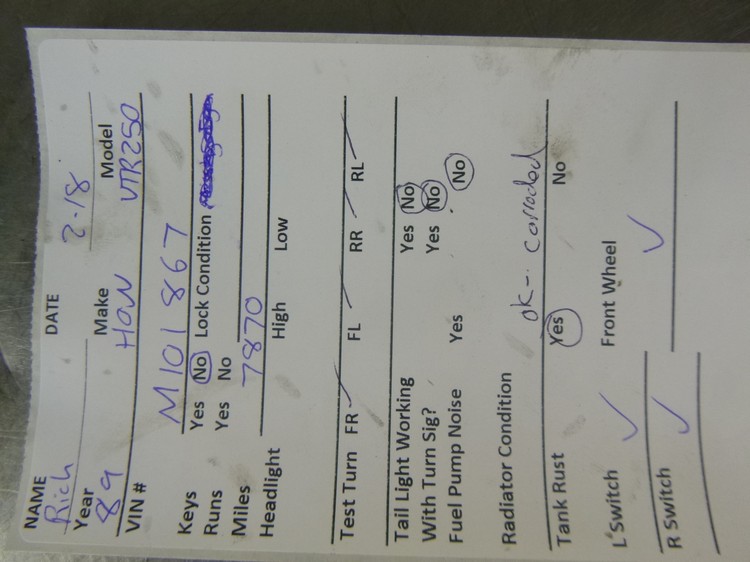 NAME DATE
Rich 2-18
Year Make Model
89 HON VTR250
VIN #
M101867
Keys Yes No Lock Condition
Runs Yes No
Miles 7870
Headlight High Low
Test Turn FR FL RR RL
Tail Light Working Yes No
With Turn Sig? Yes No
Fuel Pump Noise Yes No
Radiator Condition ok - corroded
Tank Rust Yes No
L Switch ✓ Front Wheel
R Switch ✓ ✓